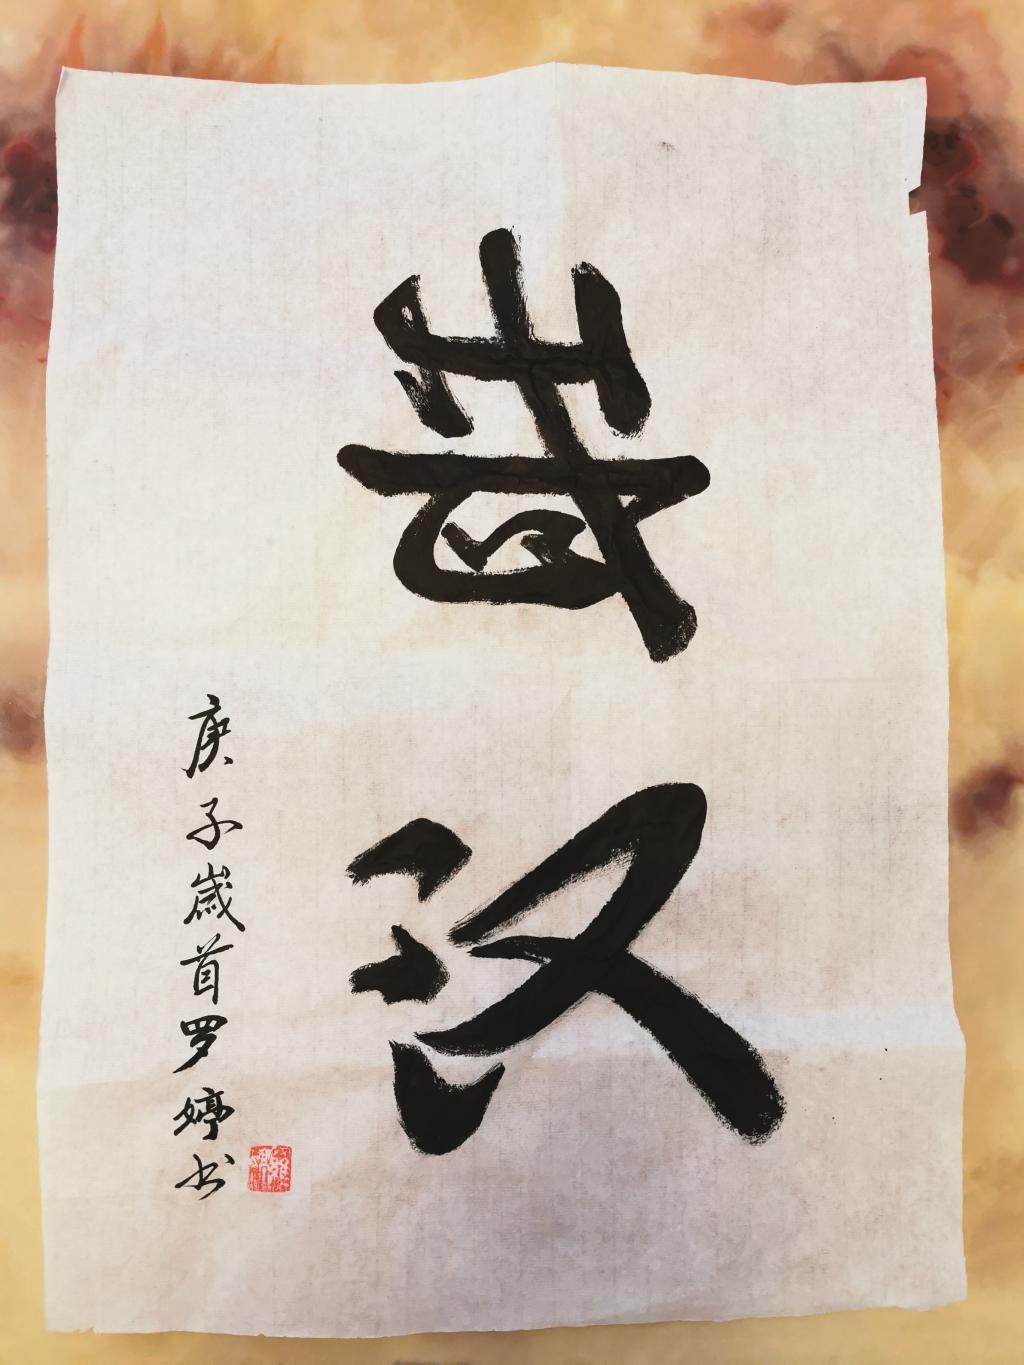 武汉
庚子歲首罗婷书